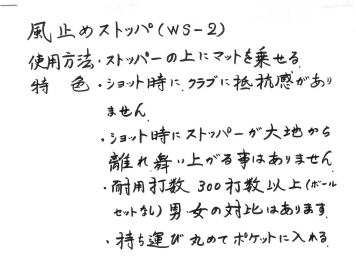 風止めストッパ(WS-2)
使用方法・ストッパーの上にマットを乗せる
特 色・ショット時に、クラブに抵抗感があり
ません。
・ショット時にストッパーが大地から
離れ舞い上がる事はありません
・耐用打数 300打数以上(ボール
セットなし)男・女の対比はあります
・持ち運び丸めてポケットに入れる